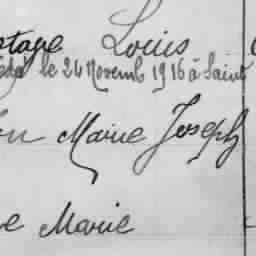 otage Louis
cédé le 24 Novemb 1916 à Saint
on Marie Joseph
e Marie